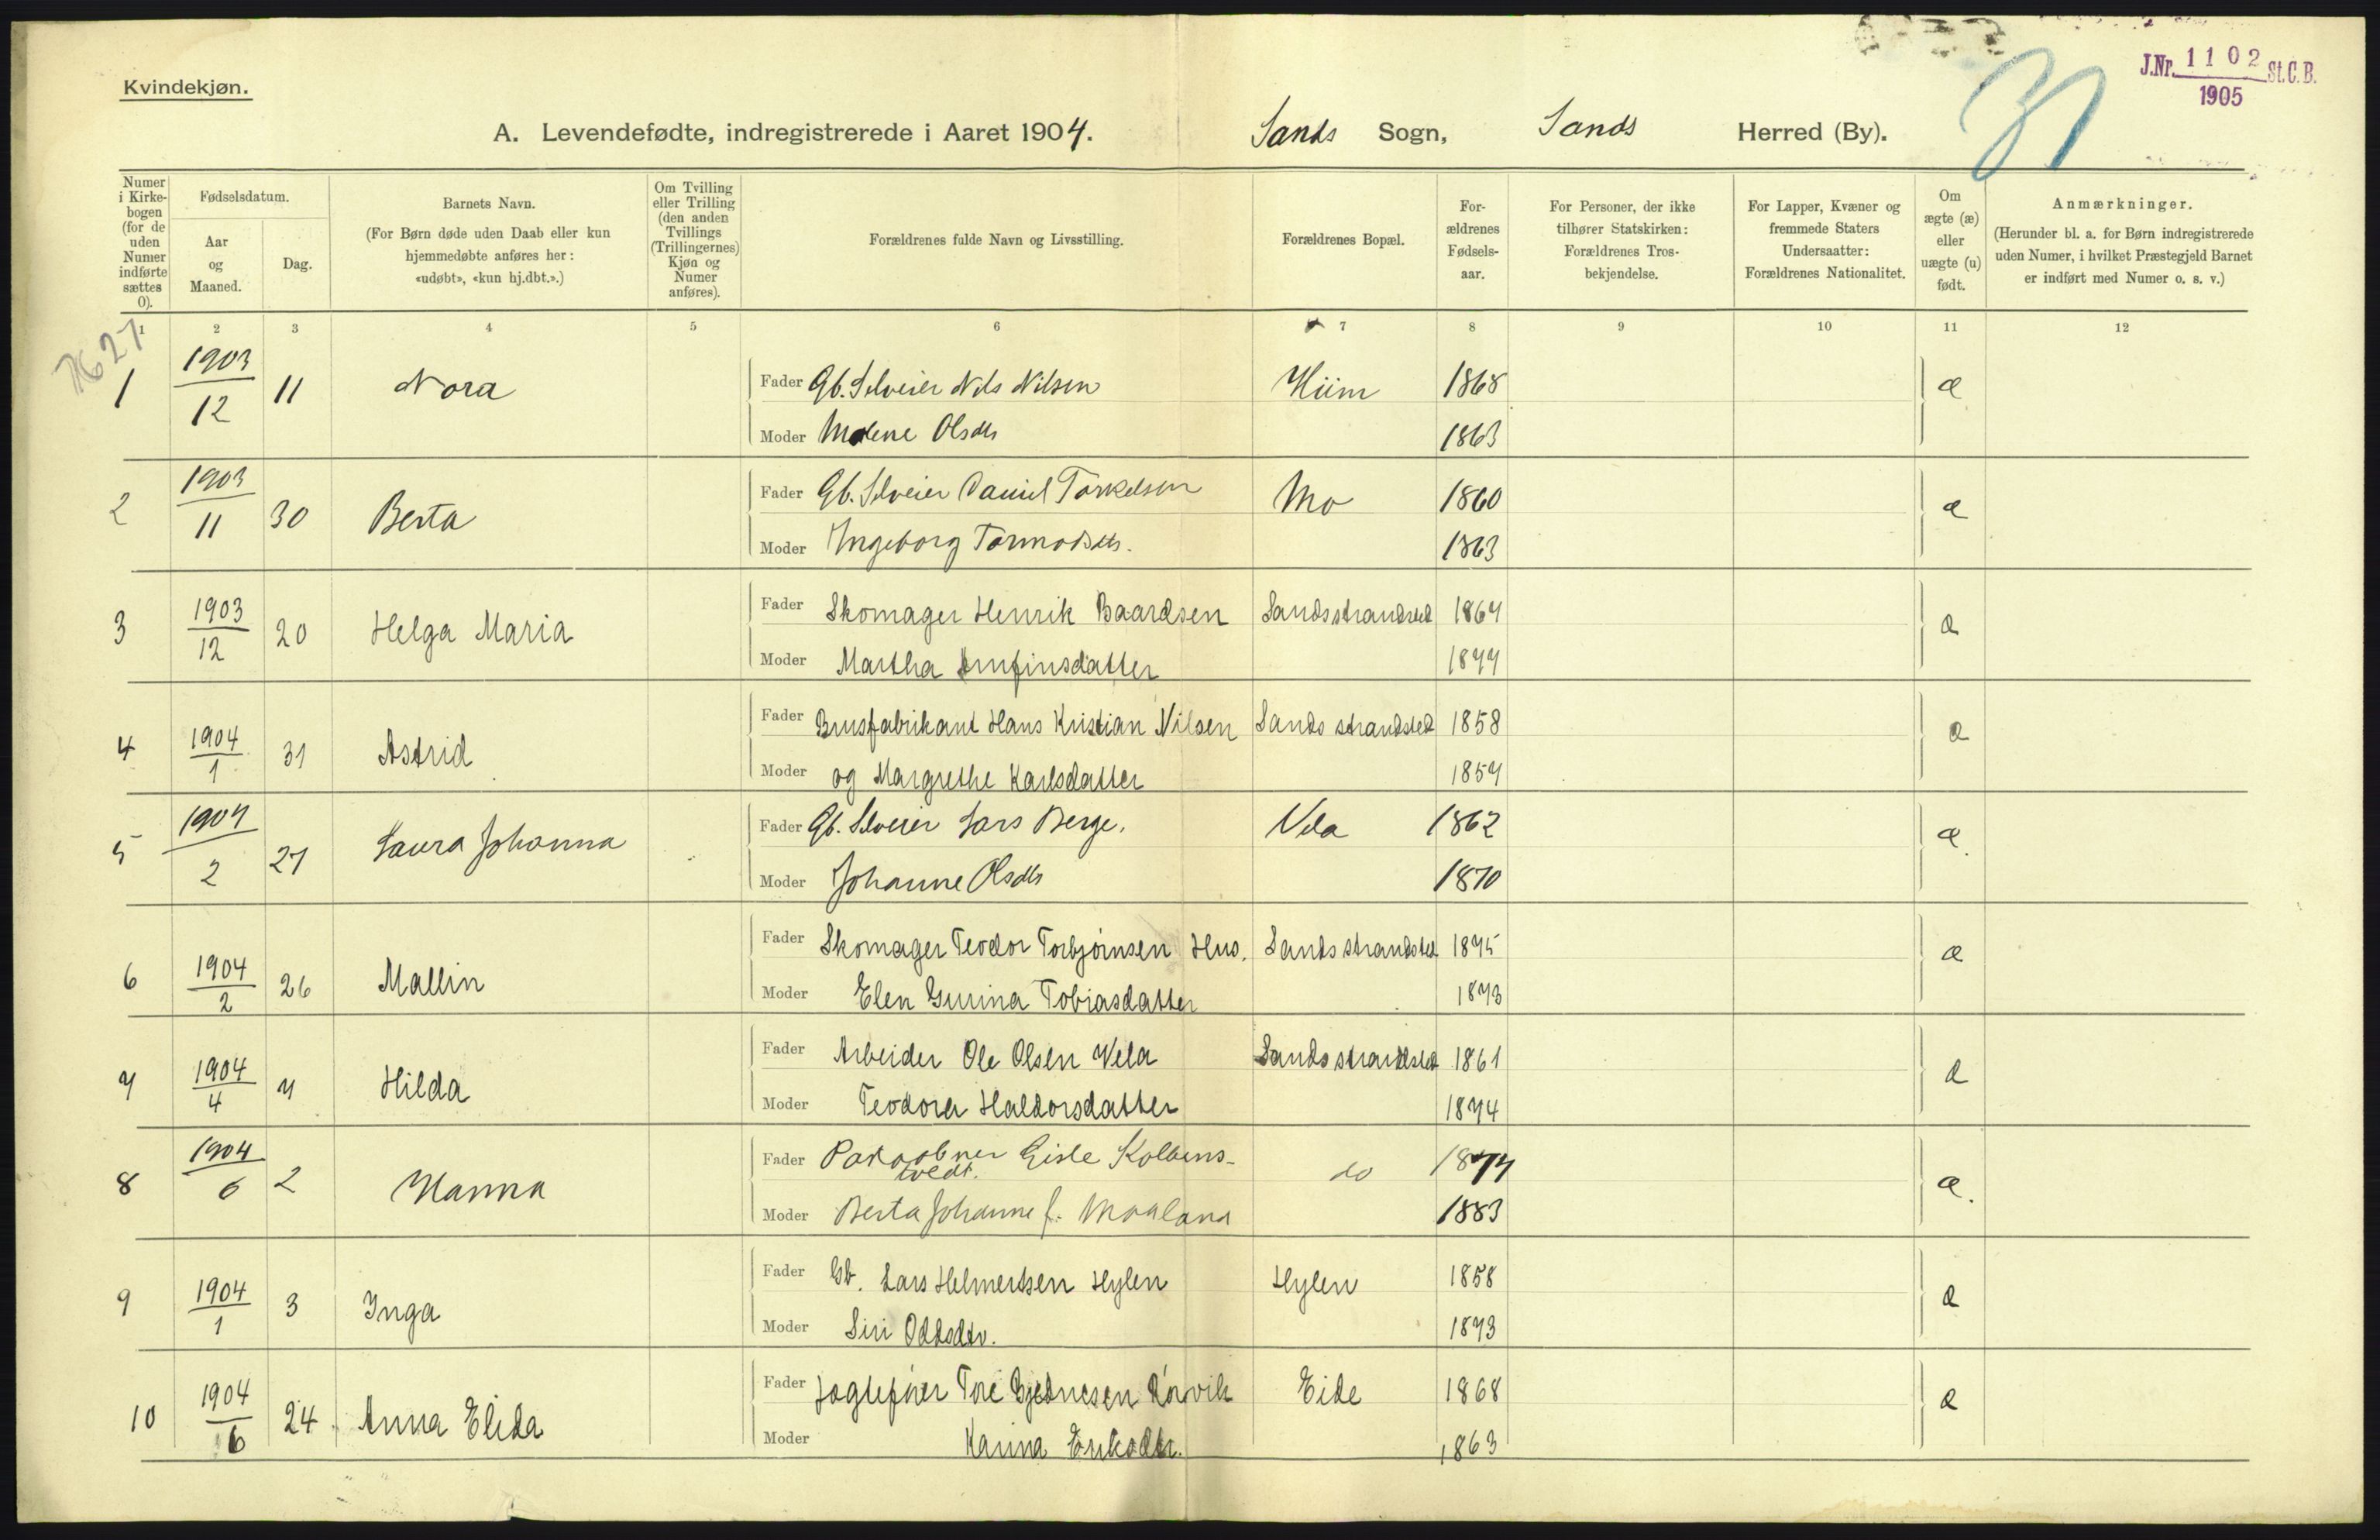 Kvindekjøn.
J.Nr. 1102 St.C.B.
1905
31
A. Levendefødte, indregistrerede i Aaret 1904. Sands Sogn, Sands Herred (By).
Numer i Kirke-bogen (for de uden Numer indførte sættes 0).
Fødselsdatum.
Aar og Maaned.
Dag.
Barnets Navn.
(For Børn døde uden Daab eller kun
hjemmedøbte anføres her:
«udøbt», «kun hj.dbt.».)
Om Tvilling
eller Trilling
(den anden
Tvillings
(Trillingernes)
Kjøn og
Numer
anføres).
Forældrenes fulde Navn og Livsstilling.
Forældrenes Bopæl.
For-
ældrenes
Fødsels-
aar.
For Personer, der ikke
tilhører Statskirken:
Forældrenes Tros-
bekjendelse.
For Lapper, Kvæner og
fremmede Staters
Undersaatter:
Forældrenes Nationalitet.
Om
ægte (æ)
eller
uægte (u)
født.
Anmærkninger.
(Herunder bl. a. for Børn indregistrerede
uden Numer, i hvilket Præstegjeld Barnet
er indført med Numer o. s. v.)
1 2 3 4 5 6 7 8 9 10 11 12
1 1903/12 11 Nora Fader Gb. Selveier Nils Nilsen Hiim 1868 æ
Moder Malene Olsdtr 1863
2 1903/11 30 Berta Fader Gb. Selveier Daniel Torkelsen Mo 1860 æ
Moder Ingeborg Tormodsdtr. 1863
3 1903/12 20 Helga Maria Fader Skomager Henrik Baardsen Sandsstrandsted 1864 æ
Moder Martha Arnfinsdatter 1877
4 1904/1 31 Astrid Fader Brusfabrikant Hans Kristian Nilsen Sands strandsted 1858 æ
Moder og Margrethe Karlsdatter 1859
5 1904/2 27 Laura Johanna Fader Gb. Selveier Lars Berge. Vela 1862 æ.
Moder Johanne Olsdtr 1870
6 1904/2 26 Mallin Fader Skomager Teodor Torbjørnsen Hus. Sands strandsted 1875 æ
Moder Elen Gurina Tobiasdatter 1873
7 1904/4 7 Hilda Fader Arbeider Ole Olsen Vela Sands strandsted 1861 æ
Moder Teodora Haldorsdatter 1874
8 1904/6 2 Hanna Fader Eisle Kolbens-
tvedt. do 1877 æ.
Moder Berta Johanne f. Moaland 1883
9 1904/1 3 Inga Fader Gb. Lars Helmertsen Hylen Hylen 1858 æ
Moder Siri Oddsdtr. 1873
10 1904/6 24 Anna Elida Fader Tore Gjednesen Eide 1868 æ
Moder Karina Eriksdtr. 1863